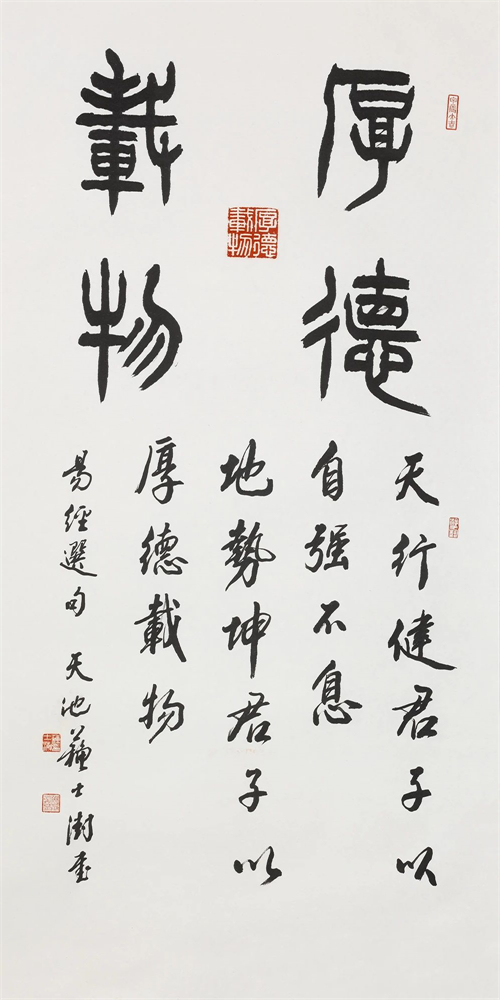 厚德
載物
天行健君子以
自强不息
地勢坤君子以
厚德載物
易經選句 天池蘇士澍書
厚德載物